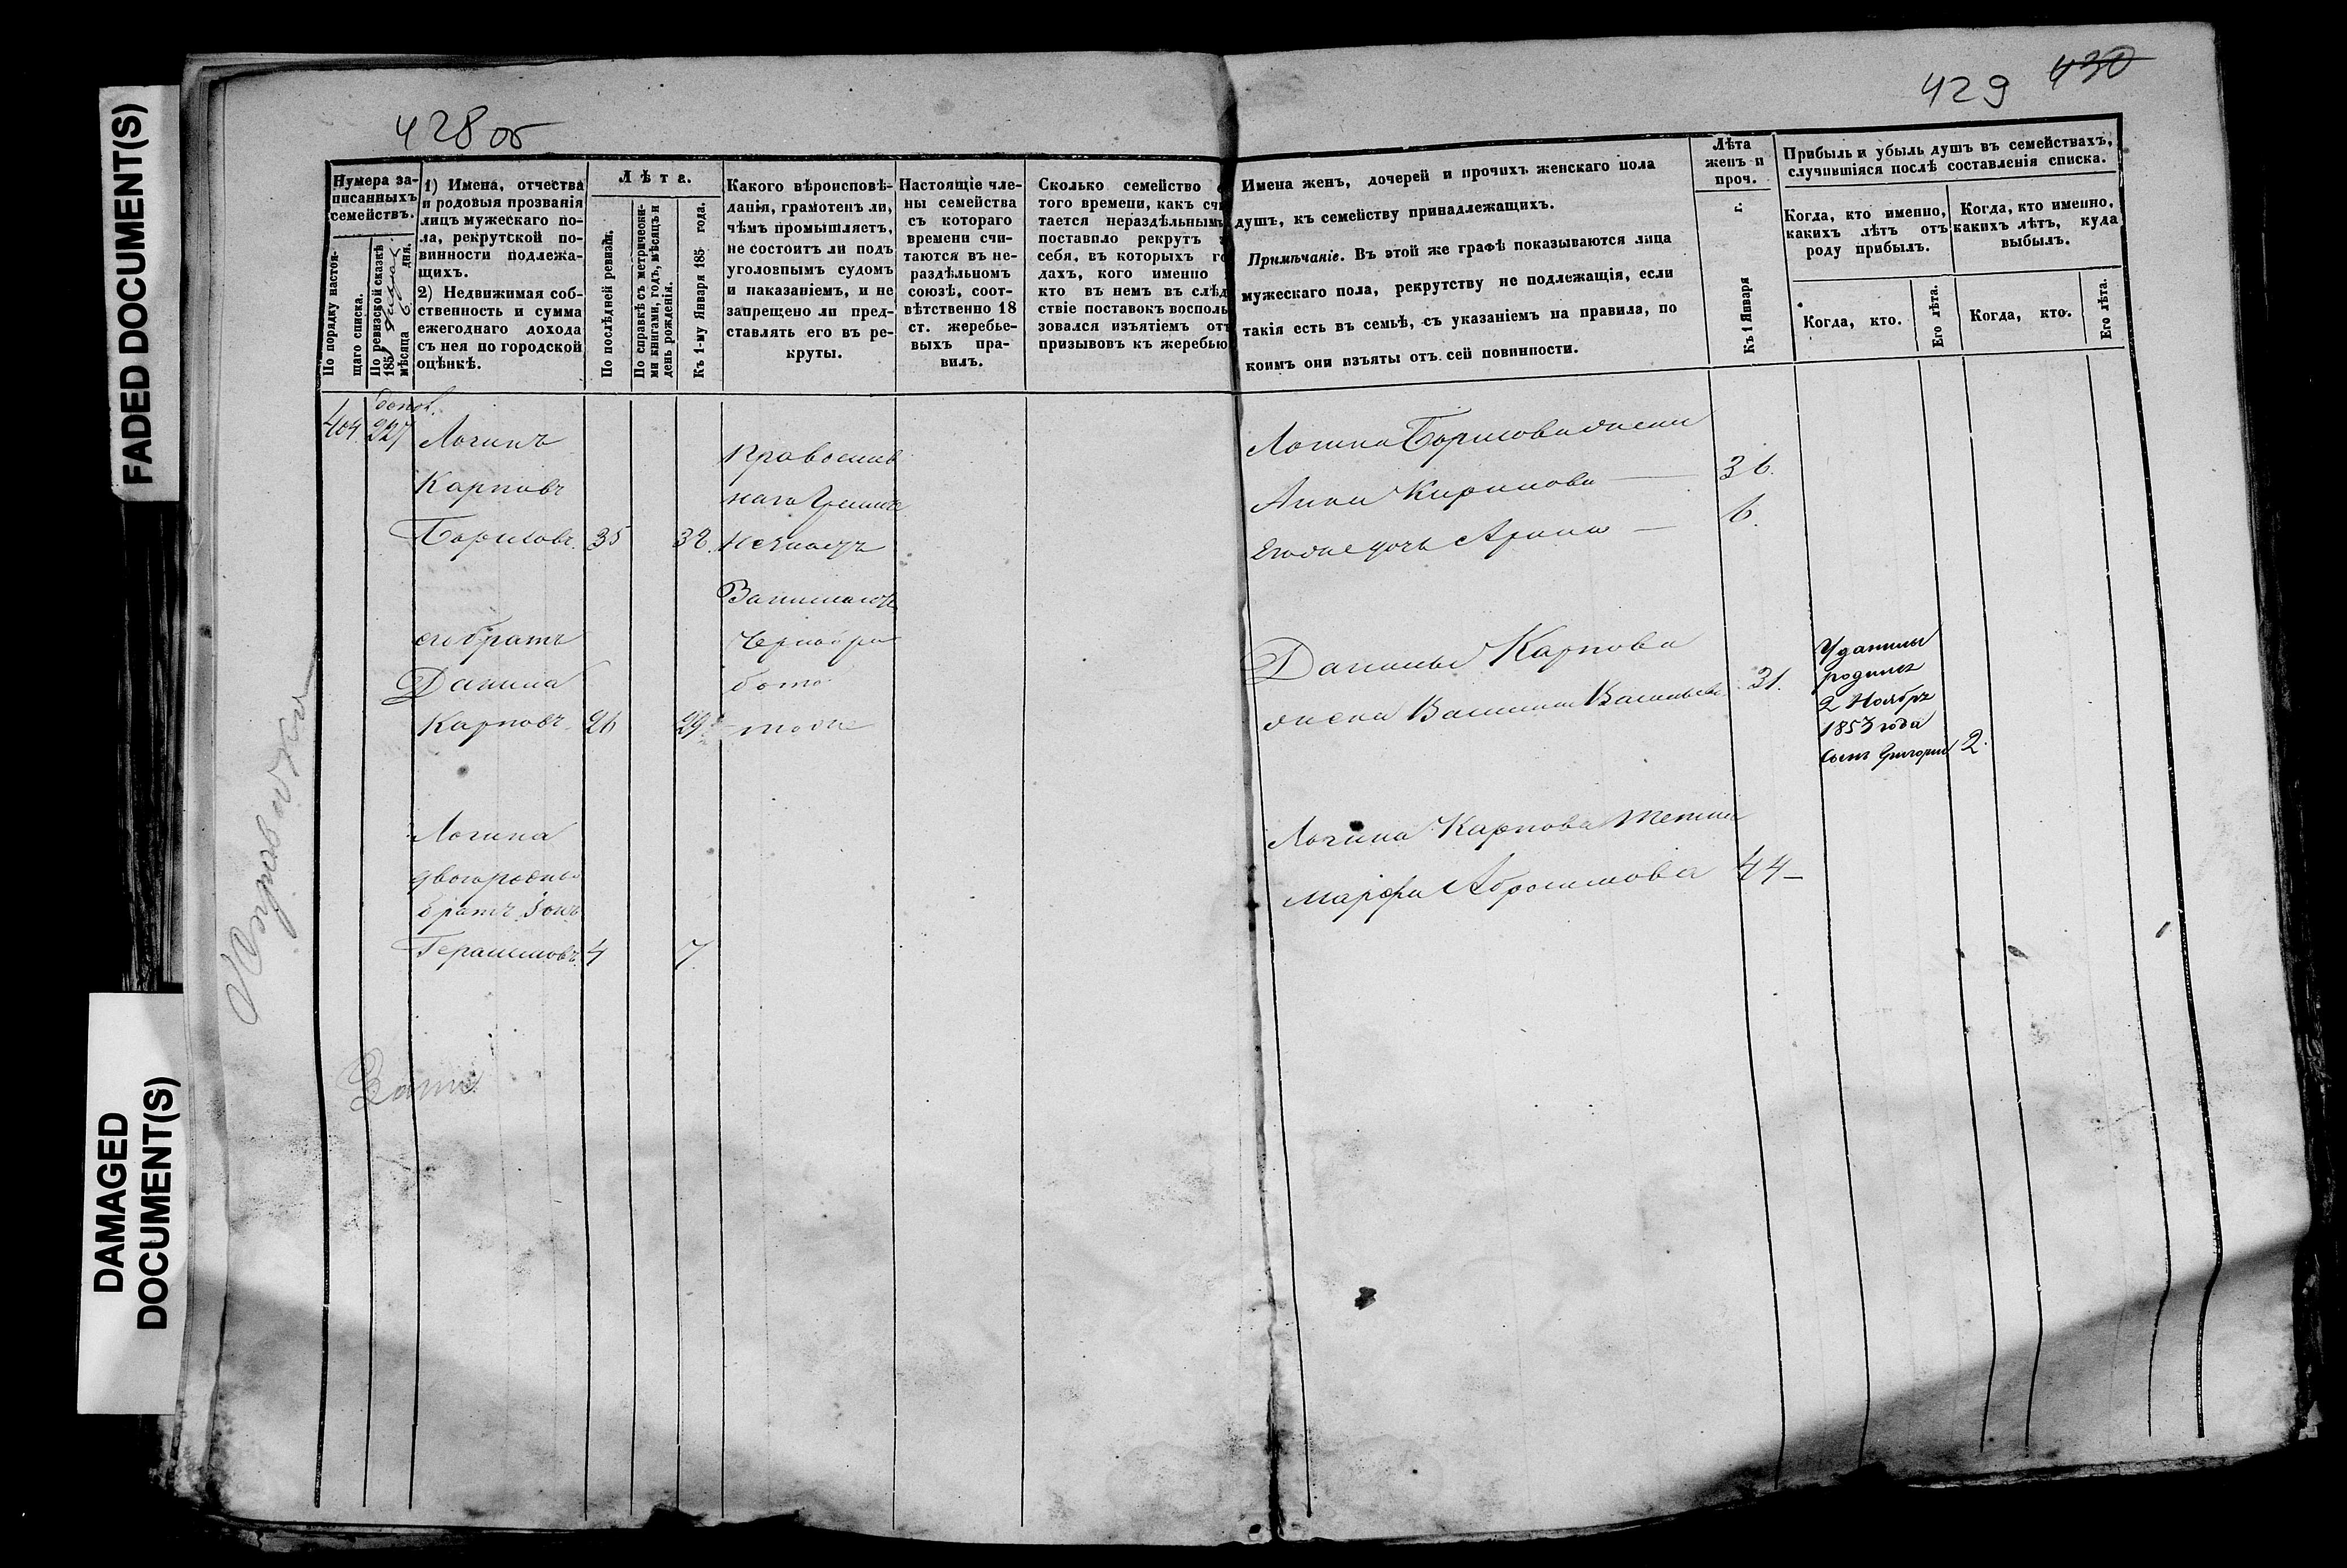 FADED DOCUMENT(S)
DAMAGED
DOCUMENT(S)
428 об
Нумера за-
писанныхъ
семействъ.
По порядку настоя-
щаго списка.
По ревизской сказкѣ
185
мѣсяца
дня.
1) Имена, отчества
и родовыя прозванія
лицъ мужескаго по-
ла, рекрутской по-
винности подлежа-
щихъ.
2) Недвижимая соб-
ственность и сумма
ежегоднаго дохода
съ нея по городской
оцѣнкѣ.
Лѣта.
По послѣдней ревизіи.
По справкѣ съ метрически-
ми книгами, годъ, мѣсяцъ и
день рожденія.
Къ 1-му Января 185 года.
Какого вѣроисповѣ-
данія, грамотенъ ли,
чѣмъ промышляетъ,
не состоитъ ли подъ
уголовнымъ судомъ
и наказаніемъ, и не
запрещено ли пред-
ставлять его въ ре-
круты.
Настоящіе чле-
ны семейства
съ котораго
времени счи-
таются въ не-
раздѣльномъ
союзѣ, соот-
вѣтственно 18
ст. жеребье-
выхъ пра-
вилъ.
Сколько семейство
того времени, какъ счи
тается нераздѣльнымъ
поставило рекрутъ
себя, въ которыхъ го
дахъ, кого именно
кто въ немъ въ слѣд
ствіе поставокъ восполь
зовался изъятіемъ отъ
призывовъ къ жеребью
404
227
Логинъ
Карповъ
Борисовъ. 35 32.
Грамотѣ
Не знаетъ
Занимается
его братъ
Данила
Карповъ. 26 29
тоже
Логина
двоюродный
братъ
Герасимовъ. 4 7.
429 430
Имена женъ, дочерей и прочихъ женскаго пола
душъ, къ семейству принадлежащихъ.
Примѣчаніе. Въ этой же графѣ показываются лица
мужескаго пола, рекрутству не подлежащія, если
такія есть въ семьѣ, съ указаніемъ на правила, по
коимъ они изъяты отъ сей повинности.
Лѣта
женъ и
проч.
Къ 1 Января
Прибыль и убыль душъ въ семействахъ,
случившіяся послѣ составленія списка.
Когда, кто именно,
какихъ лѣтъ отъ
роду прибылъ.
Когда, кто именно,
какихъ лѣтъ, куда
выбылъ.
Когда, кто.
Его лѣта.
Когда, кто.
Его лѣта.
Логина Борисова жена
Анна Кирилова — 36.
Его же дочь Арина — 6.
Данилы Карпова
жена Василиса Васильева 31.
У Данилы
родился
2 Ноября
1853 года
сынъ Григорий 2.
Логина Карпова тетка
Марфа Абросимова 44 –